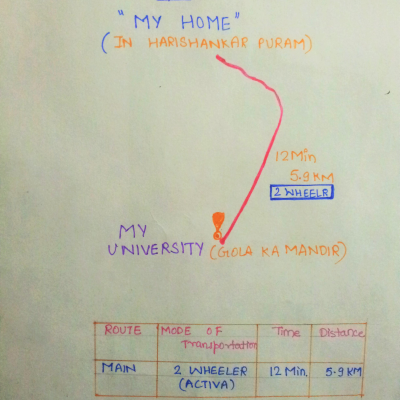 "MY HOME"
(IN HARISHANKAR PURAM)
12 Min
5.9 KM
2 WHEELR
MY
UNIVERSITY (GOLA KA MANDIR)
ROUTE MODE OF Transportation Time Distance
MAIN 2 WHEELER (ACTIVA) 12 Min. 5.9 KM